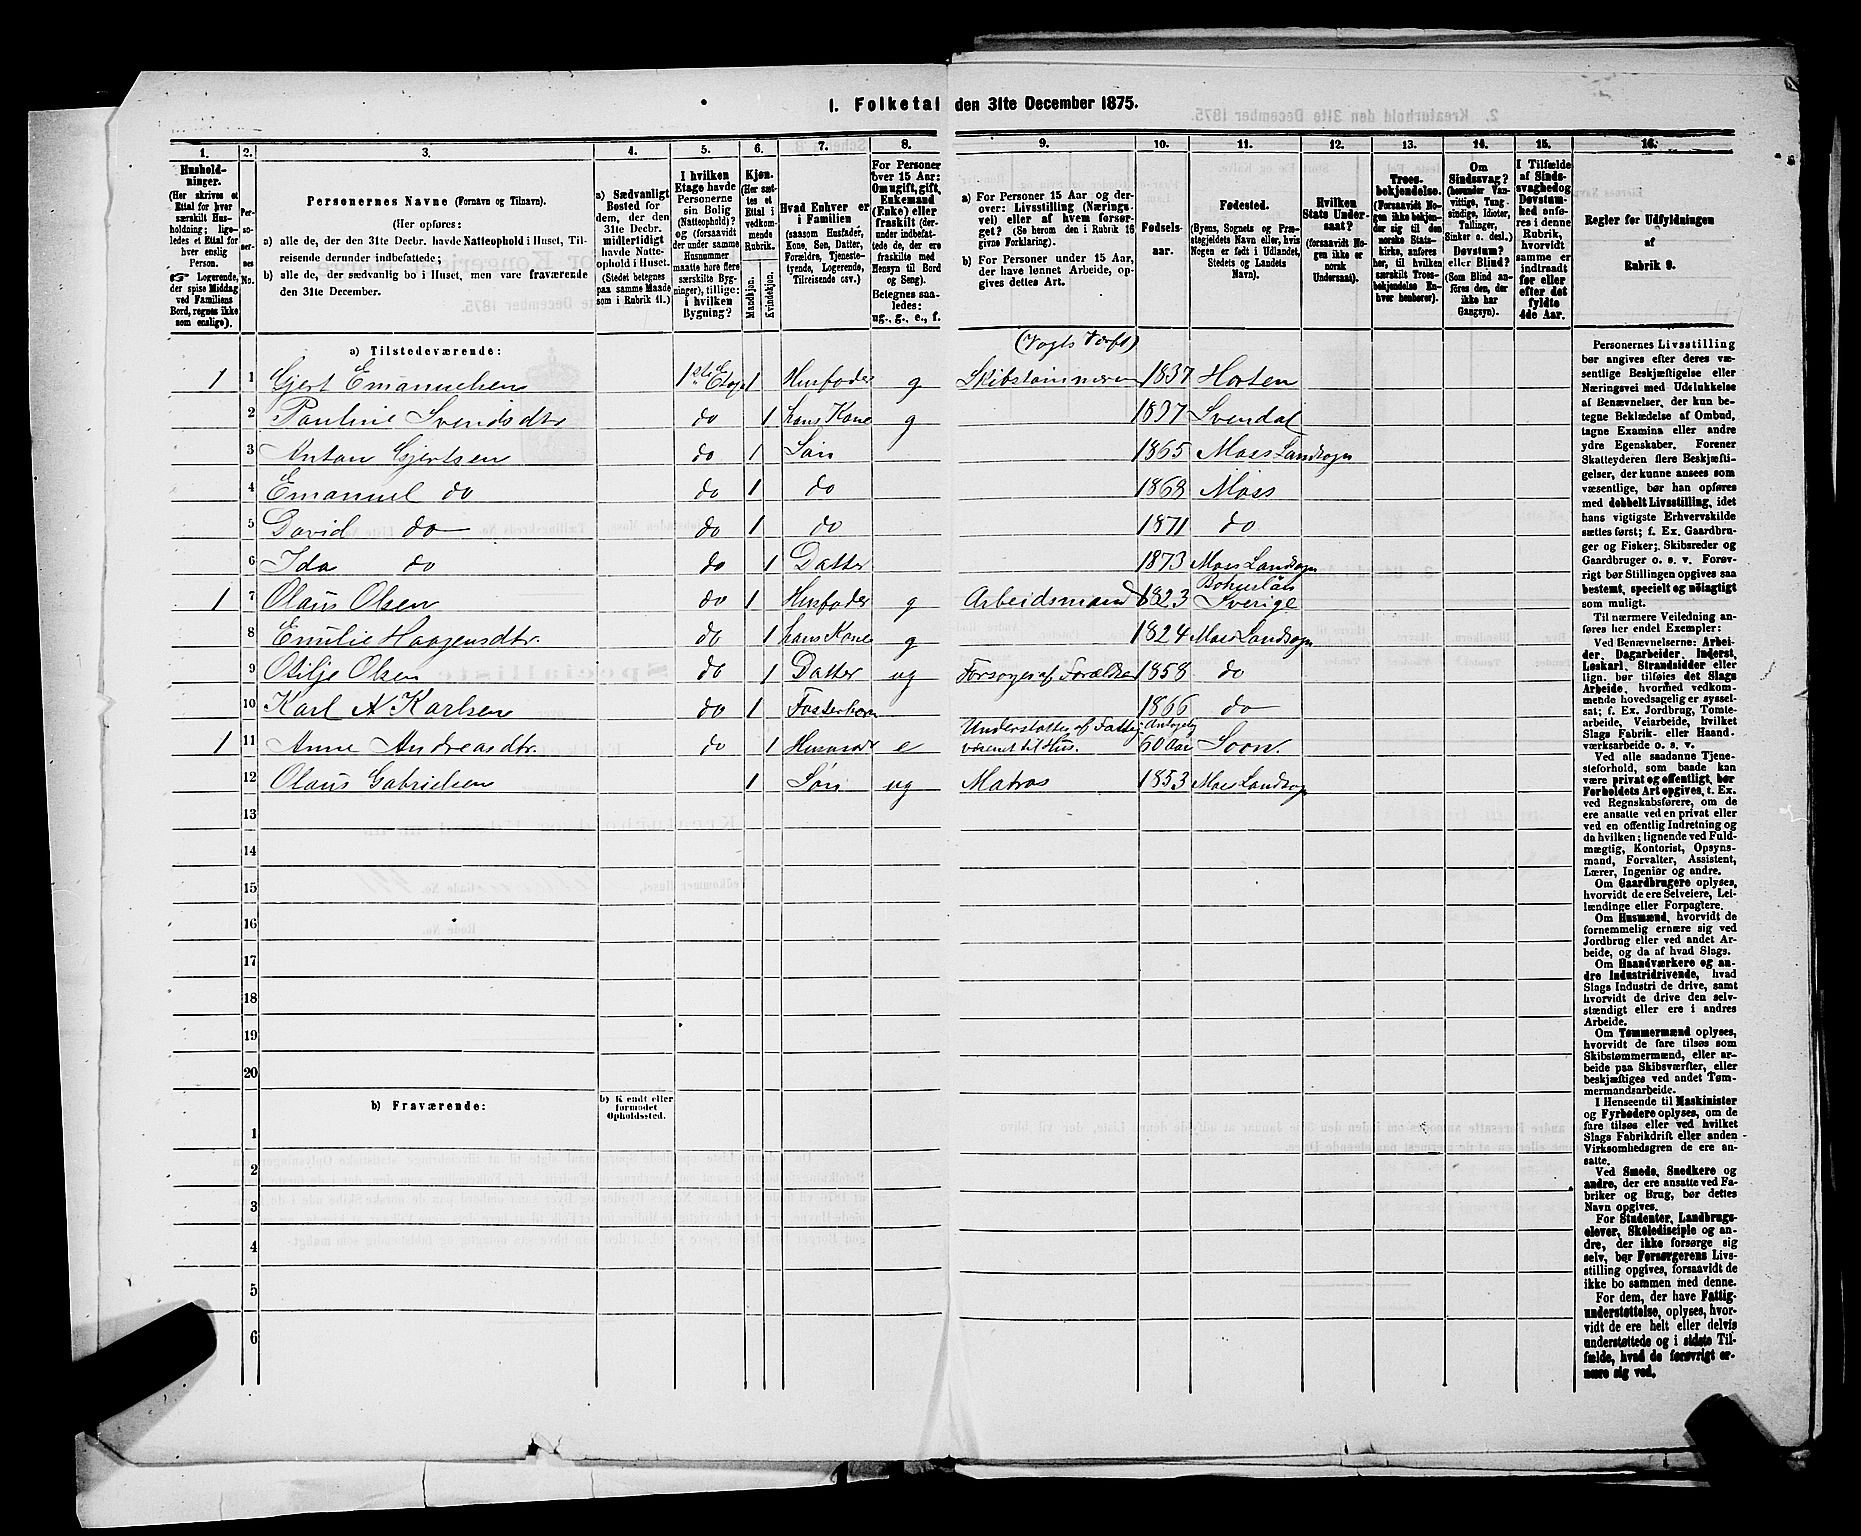 1. Folketal den 31te December 1875.
1. 2. 3. 4. 5. 6. 7. 8. 9. 10. 11. 12. 13. 14. 15. 16.
Husholdninger.
(Her skrives et Ettal for hver særskilt Husholdning; ligeledes et Ettal for hver enslig Person.
☞ Logerende, der spise Middag ved Familiens Bord, regnes ikke som enslige).
Personernes No.
Personernes Navne (Fornavn og Tilnavn).
(Her opføres:
a) alle de, der den 31te Decbr. havde Natteophold i Huset, Tilreisende derunder indbefattede;
b) alle de, der sædvanlig bo i Huset, men vare fraværende den 31te December.
a) Sædvanligt Bosted for dem, der den 31te Decbr. midlertidigt havde Natteophold i Huset.
(Stedet betegnes paa samme Maade som i Rubrik 11.)
I hvilken Etage havde Personerne sin Bolig (Natteophold)? og (forsaavidt der under samme Husnummer maatte høre flere særskilte Bygninger), tillige: i hvilken Bygning?
Kjøn.
(Her sættes et Ettal i vedkommende Rubrik.
Mandkjøn.
Kvindekjøn.
Hvad Enhver er i Familien
(saasom Husfader, Kone, Søn, Datter, Forældre, Tjenestetyende, Logerende, Tilreisende osv.)
For Personer over 15 Aar: Om ugift, gift, Enkemand (Enke) eller fraskilt (derunder indbefattede de, der ere fraskilte med Hensyn til Bord og Seng).
Betegnes saaledes: ug., g., e., f.
a) For Personer 15 Aar og derover: Livsstilling (Næringsvei) eller af hvem forsørget? (Se herom den i Rubrik 16 givne Forklaring).
b) For Personer under 15 Aar, der have lønnet Arbeide, opgives dettes Art.
Fødselsaar.
Fødested.
(Byens, Sognets og Præstegjeldets Navn eller, hvis Nogen er født i Udlandet, Stedets og Landets Navn).
Hvilken Stats Undersaat?
(forsaavidt Nogen ikke er norsk Undersaat).
Troesbekjendelse.
(Forsaavidt Nogen ikke bekjender sig til den norske Statskirke, anføres her, til hvilken særskilt Troesbekjendelse Enhver henhører).
Om Sindssvag? (herunder Vanvittige, Tungsindige, Idioter, Tullinger, Sinker o. desl.) Døvstum? eller Blind? (Som Blind anføres den, der ikke har Gangsyn).
I Tilfælde af Sindssvaghed og Døvstumhed anføres i denne Rubrik, hvorvidt samme er indtraadt før eller efter det fyldte 4de Aar.
Regler før Udfyldningen af Rubrik 9.
a) Tilstedeværende:
(Vogts Værft)
1 1 Gjert Emanuelsen 1ste Etage 1 Husfader g Skibstømmermand 1837 Horten
2 Pauline Svendsdtr do 1 hans Kone g 1837 Svendal
3 Anton Gjertsen do 1 Søn 1865 Moss Landsogn
4 Emanuel do do 1 do 1868 Moss
5 David do do 1 do 1871 do
6 Ida do do 1 Datter 1873 Moss Landsogn
Bohuslän
1 7 Olaus Olsen do 1 Husfader g Arbeidsmand 1823 Sverige
8 Emilie Haagensdtr. do 1 hans Kone g 1824 Moss Landsogn
9 Otilje Olsen do 1 Datter ug Forsørges af Forældrene 1858 do
10 Karl A Karlsen do 1 Fosterbarn 1866 do
Understøttes af Fattig- Antagelig
1 11 Anne Andreasdtr. do 1 Husmoder e væsenet til Hus. 60 Aar Soon.
12 Olaus Gabrielsen 1 Søn ug Matros 1853 Moss Landsogn
13
14
15
16
17
18
19
20
b) Fraværende:
b) Kjendt eller formodet Opholdssted.
1
2
3
4
5
6
Personernes Livsstilling
bør angives efter deres væ-
sentlige Beskjæftigelse eller
Næringsvei med Udelukkelse
af Benævnelser, der kun be-
tegne Beklædelse af Ombud,
tagne Examina eller andre
ydre Egenskaber. Forener
Skatteyderen flere Beskjæfti-
gelser, der kunne ansees som
væsentlige, bør han opføres
med dobbelt Livsstilling, idet
hans vigtigste Erhvervskilde
sættes først; f. Ex. Gaardbru-
ger og Fisker; Skibsreder og
Gaardbruger o. s. v. Forøv-
rigt bør Stillingen opgives saa
bestemt, specielt og nöiagtigt
som muligt.
Til nærmere Veiledning an-
føres her endel Exempler:
Ved Benævnelserne: Arbei-
der, Dagarbeider, Inderst,
Løskarl, Strandsidder eller
lign. bør tilføies det Slags
Arbeide, hvormed vedkom-
mende hovedsagelig er syssel-
sat; f. Ex. Jordbrug, Tomte-
arbeide, Veiarbeide, hvilket
Slags Fabrik- eller Haand-
værksarbeide o. s. v.
Ved alle saadanne Tjene-
steforhold, som baade kan
være privat og offentligt, bør
Forholdets Art opgives, t. Ex.
ved Regnskabsførere, om de
ere ansatte ved en privat eller
ved en offentlig Indretning og
da hvilken; lignende ved Fuld-
mægtig, Kontorist, Opsyns-
mand, Forvalter, Assistent,
Lærer, Ingeniør og andre.
Om Gaardbrugere oplyses,
hvorvidt de ere Selveiere, Lei-
lændinge eller Forpagtere.
Om Husmænd, hvorvidt de
fornemmelig ernære sig ved
Jordbrug eller ved andet Ar-
beide, og da af hvad Slags.
Om Haandværkere og an-
dre Industridrivende, hvad
Slags Industri de drive, samt
hvorvidt de drive den selv-
stændigt eller ere i andres
Arbeide.
Om Tømmermænd oplyses,
hvorvidt de fare tilsøs som
Skibstømmermænd, eller ar-
beide paa Skibsværfter, eller
beskjæftiges ved andet Tøm-
mermandsarbeide.
I Henseende til Maskinister
og Fyrbødere oplyses, om de
fare tilsøs eller ved hvilket
Slags Fabrikdrift eller anden
Virksomhedsgren de ere an-
satte.
Ved Smede, Snedkere og
andre, der ere ansatte ved Fa-
briker og Brug, bør dettes
Navn opgives.
For Studenter, Landbrugs-
elever, Skoledisciple og an-
dre, der ikke forsørge sig
selv, bør Forsørgerens Livs-
stilling opgives, forsaavidt de
ikke bo sammen med denne.
For dem, der have Fattig-
understøttelse, oplyses, hvor-
vidt de ere helt eller delvis
understøttede og i sidste Til-
fælde, hvad de forøvrigt er-
nære sig ved.